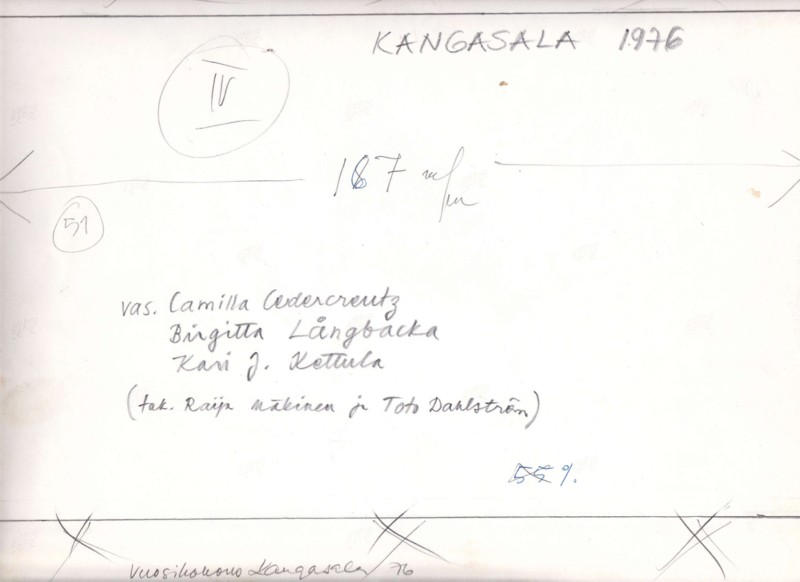 KANGASALA 1976
IV
187 m/m
51
vas. Camilla Cedercreutz
Birgitta Långbacka
Kari J. Kettula
(tak. Raija Mäkinen ja Toto Dahlström)
55 %.
Vuosikokous Kangasala 76